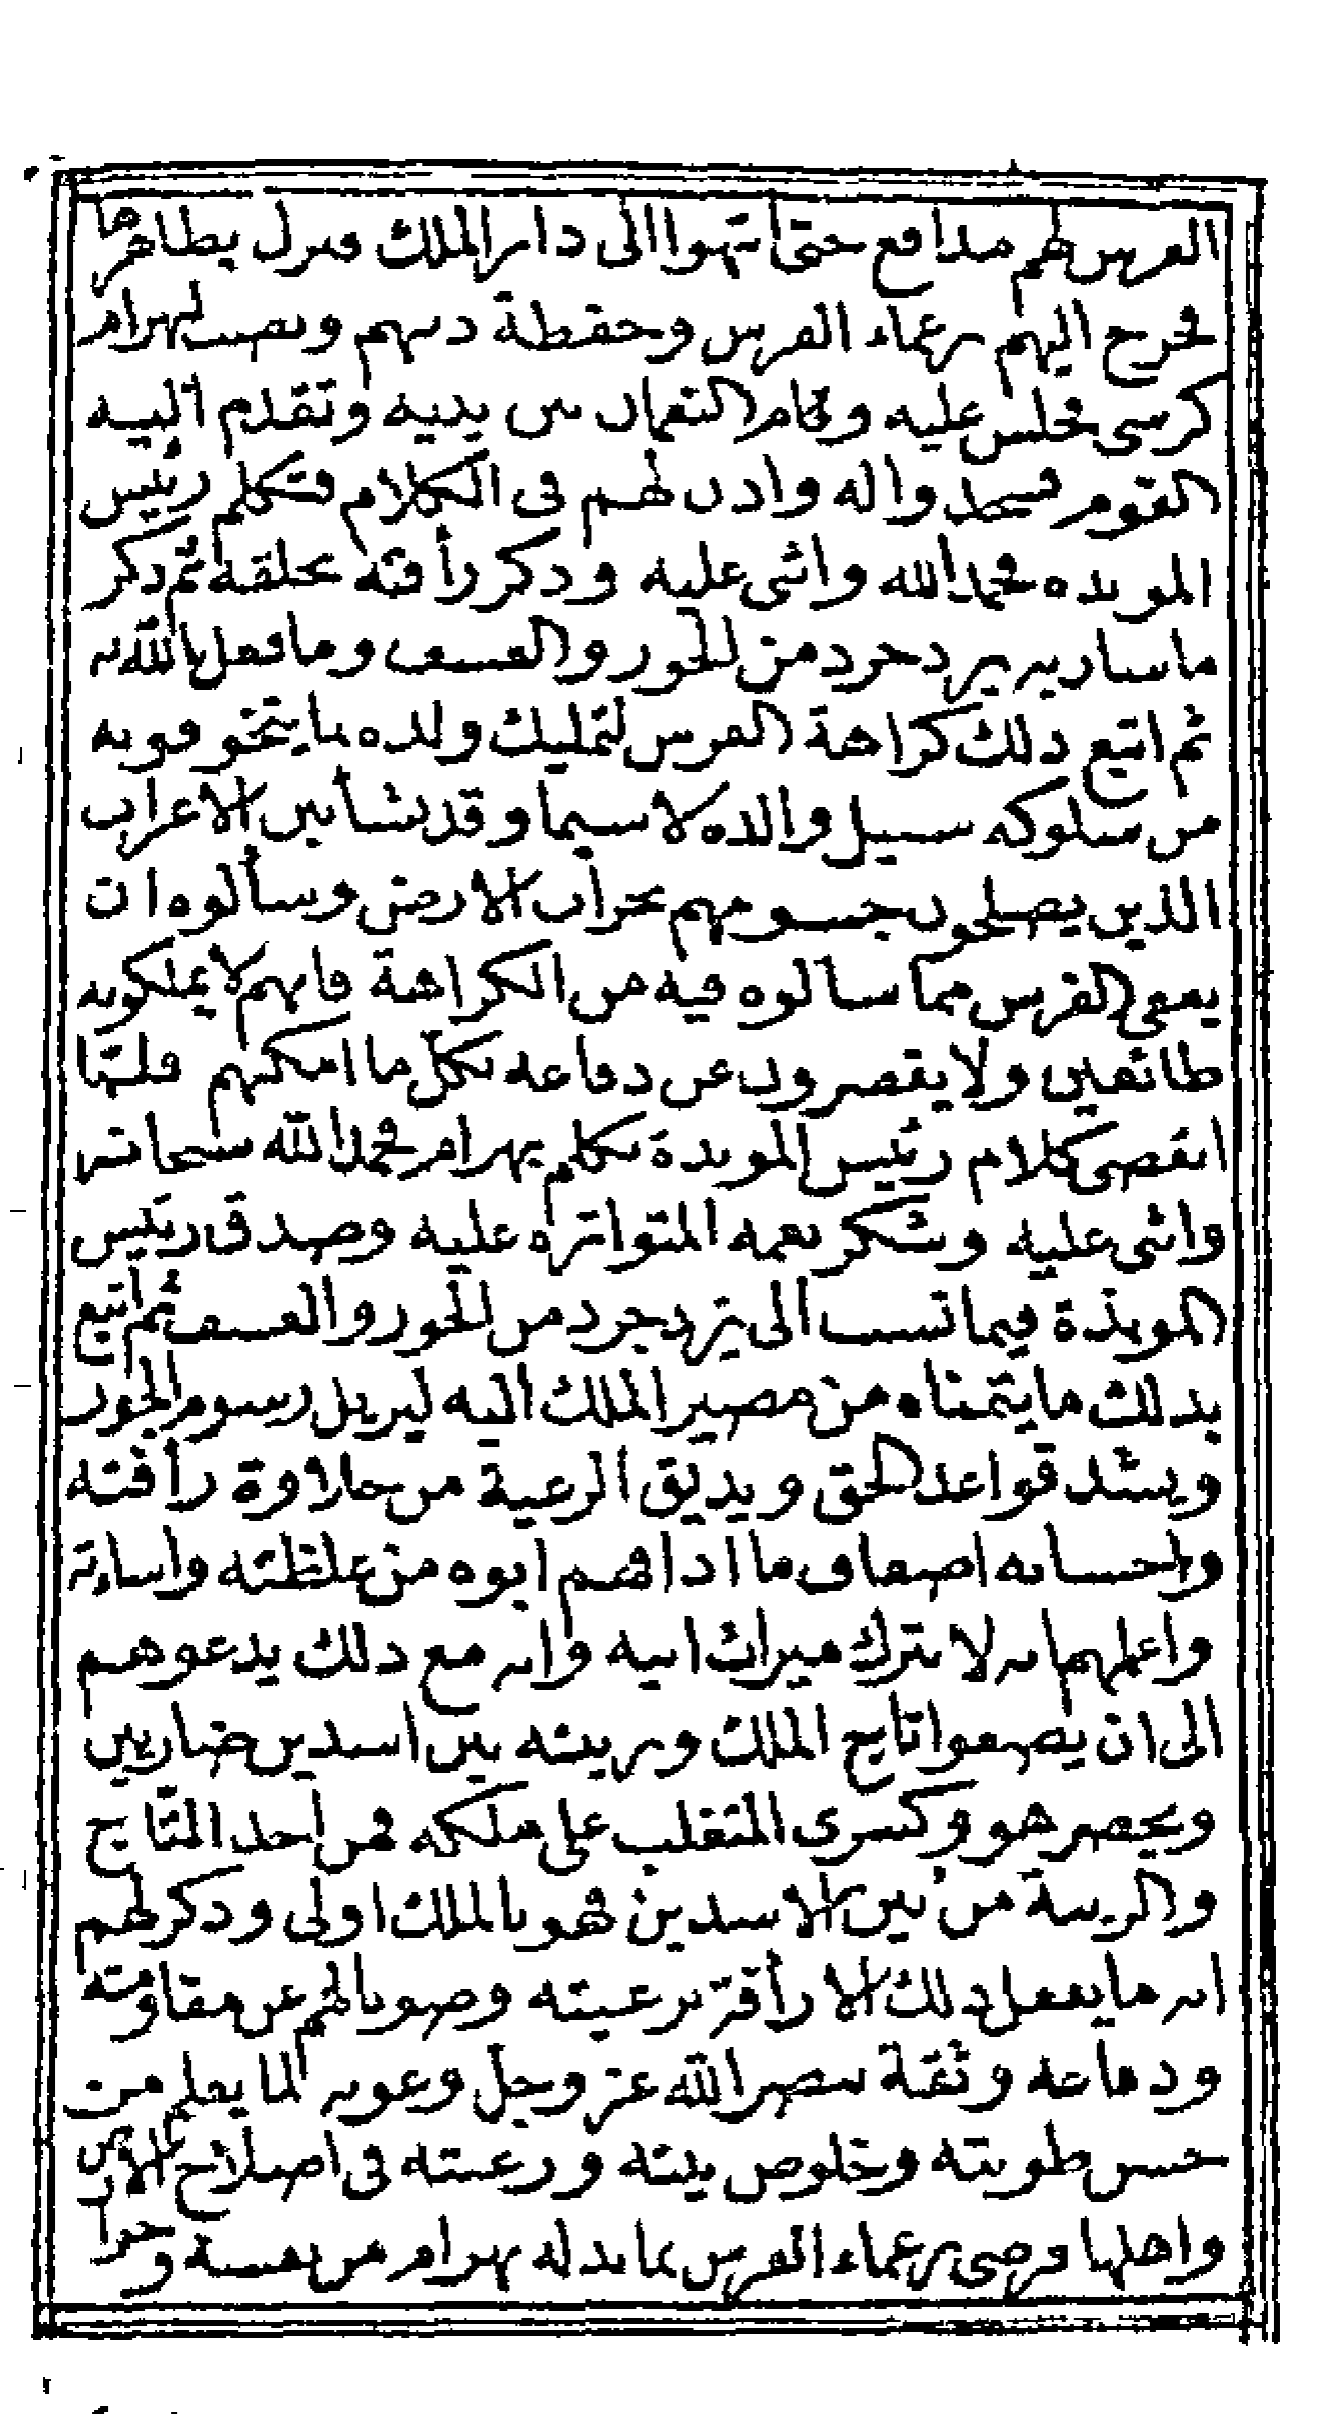 الفرس لهم مدافع حتى انتهوا الى دار الملك فنزل بظاهرها
فخرج اليهم زعماء الفرس وحفظة دينهم ونصب لبهرام
كرسى فجلس عليه وقام النعمان بين يديه وتقدم اليه
القوم فسجدوا له واذن لهم فى الكلام فتكلم رئيس
الموبذه فحمد الله واثنى عليه وذكر رأفته بخلقه ثم ذكر
ما سار به يزدجرد من الجور والعسف وما فعل الله به
ثم اتبع ذلك كراهة الفرس لتمليك ولده بما يتخوفونه
من سلوكه سبيل والده لا سيما وقد نشأ بين الاعراب
الذين يصلحون جسومهم بخراب الارض وسألوه ان
يعفى الفرس مما سألوه فيه من الكراهة فانهم لا يملكونه
طائعين ولا يقصرون عن دفاعه بكل ما امكنهم فلما
انقضى كلام رئيس الموبذة تكلم بهرام فحمد الله سبحانه
واثنى عليه وشكر نعمه المتواتره عليه وصدق رئيس
الموبذة فيما نسب الى يزدجرد من الجور والعسف ثم اتبع
بذلك ما يتمناه من مصير الملك اليه ليزيل رسوم الجور
ويشد قواعد الحق ويذيق الرعية من حلاوة رأفته
واحسانه اضعاف ما اذاقهم ابوه من غلظته واساءته
واعلمهم انه لا يترك ميراث ابيه وانه مع ذلك يدعوهم
الى ان يضعوا تاج الملك وزينته بين اسدين ضاريين
ويحضر هو وكسرى المتغلب على ملكه فمن اخذ التاج
والزينة من بين الاسدين فهو بالملك اولى وذكر لهم
انه ما يفعل ذلك الا رأفة برعيته وصونا لهم عن مقاومته
ودفاعه وثقة بنصر الله عز وجل وعونه لما يعلم من
حسن طويته وخلوص نيته ورغبته فى اصلاح الارض
واهلها فرضى زعماء الفرس بما بذله بهرام من نفسه و